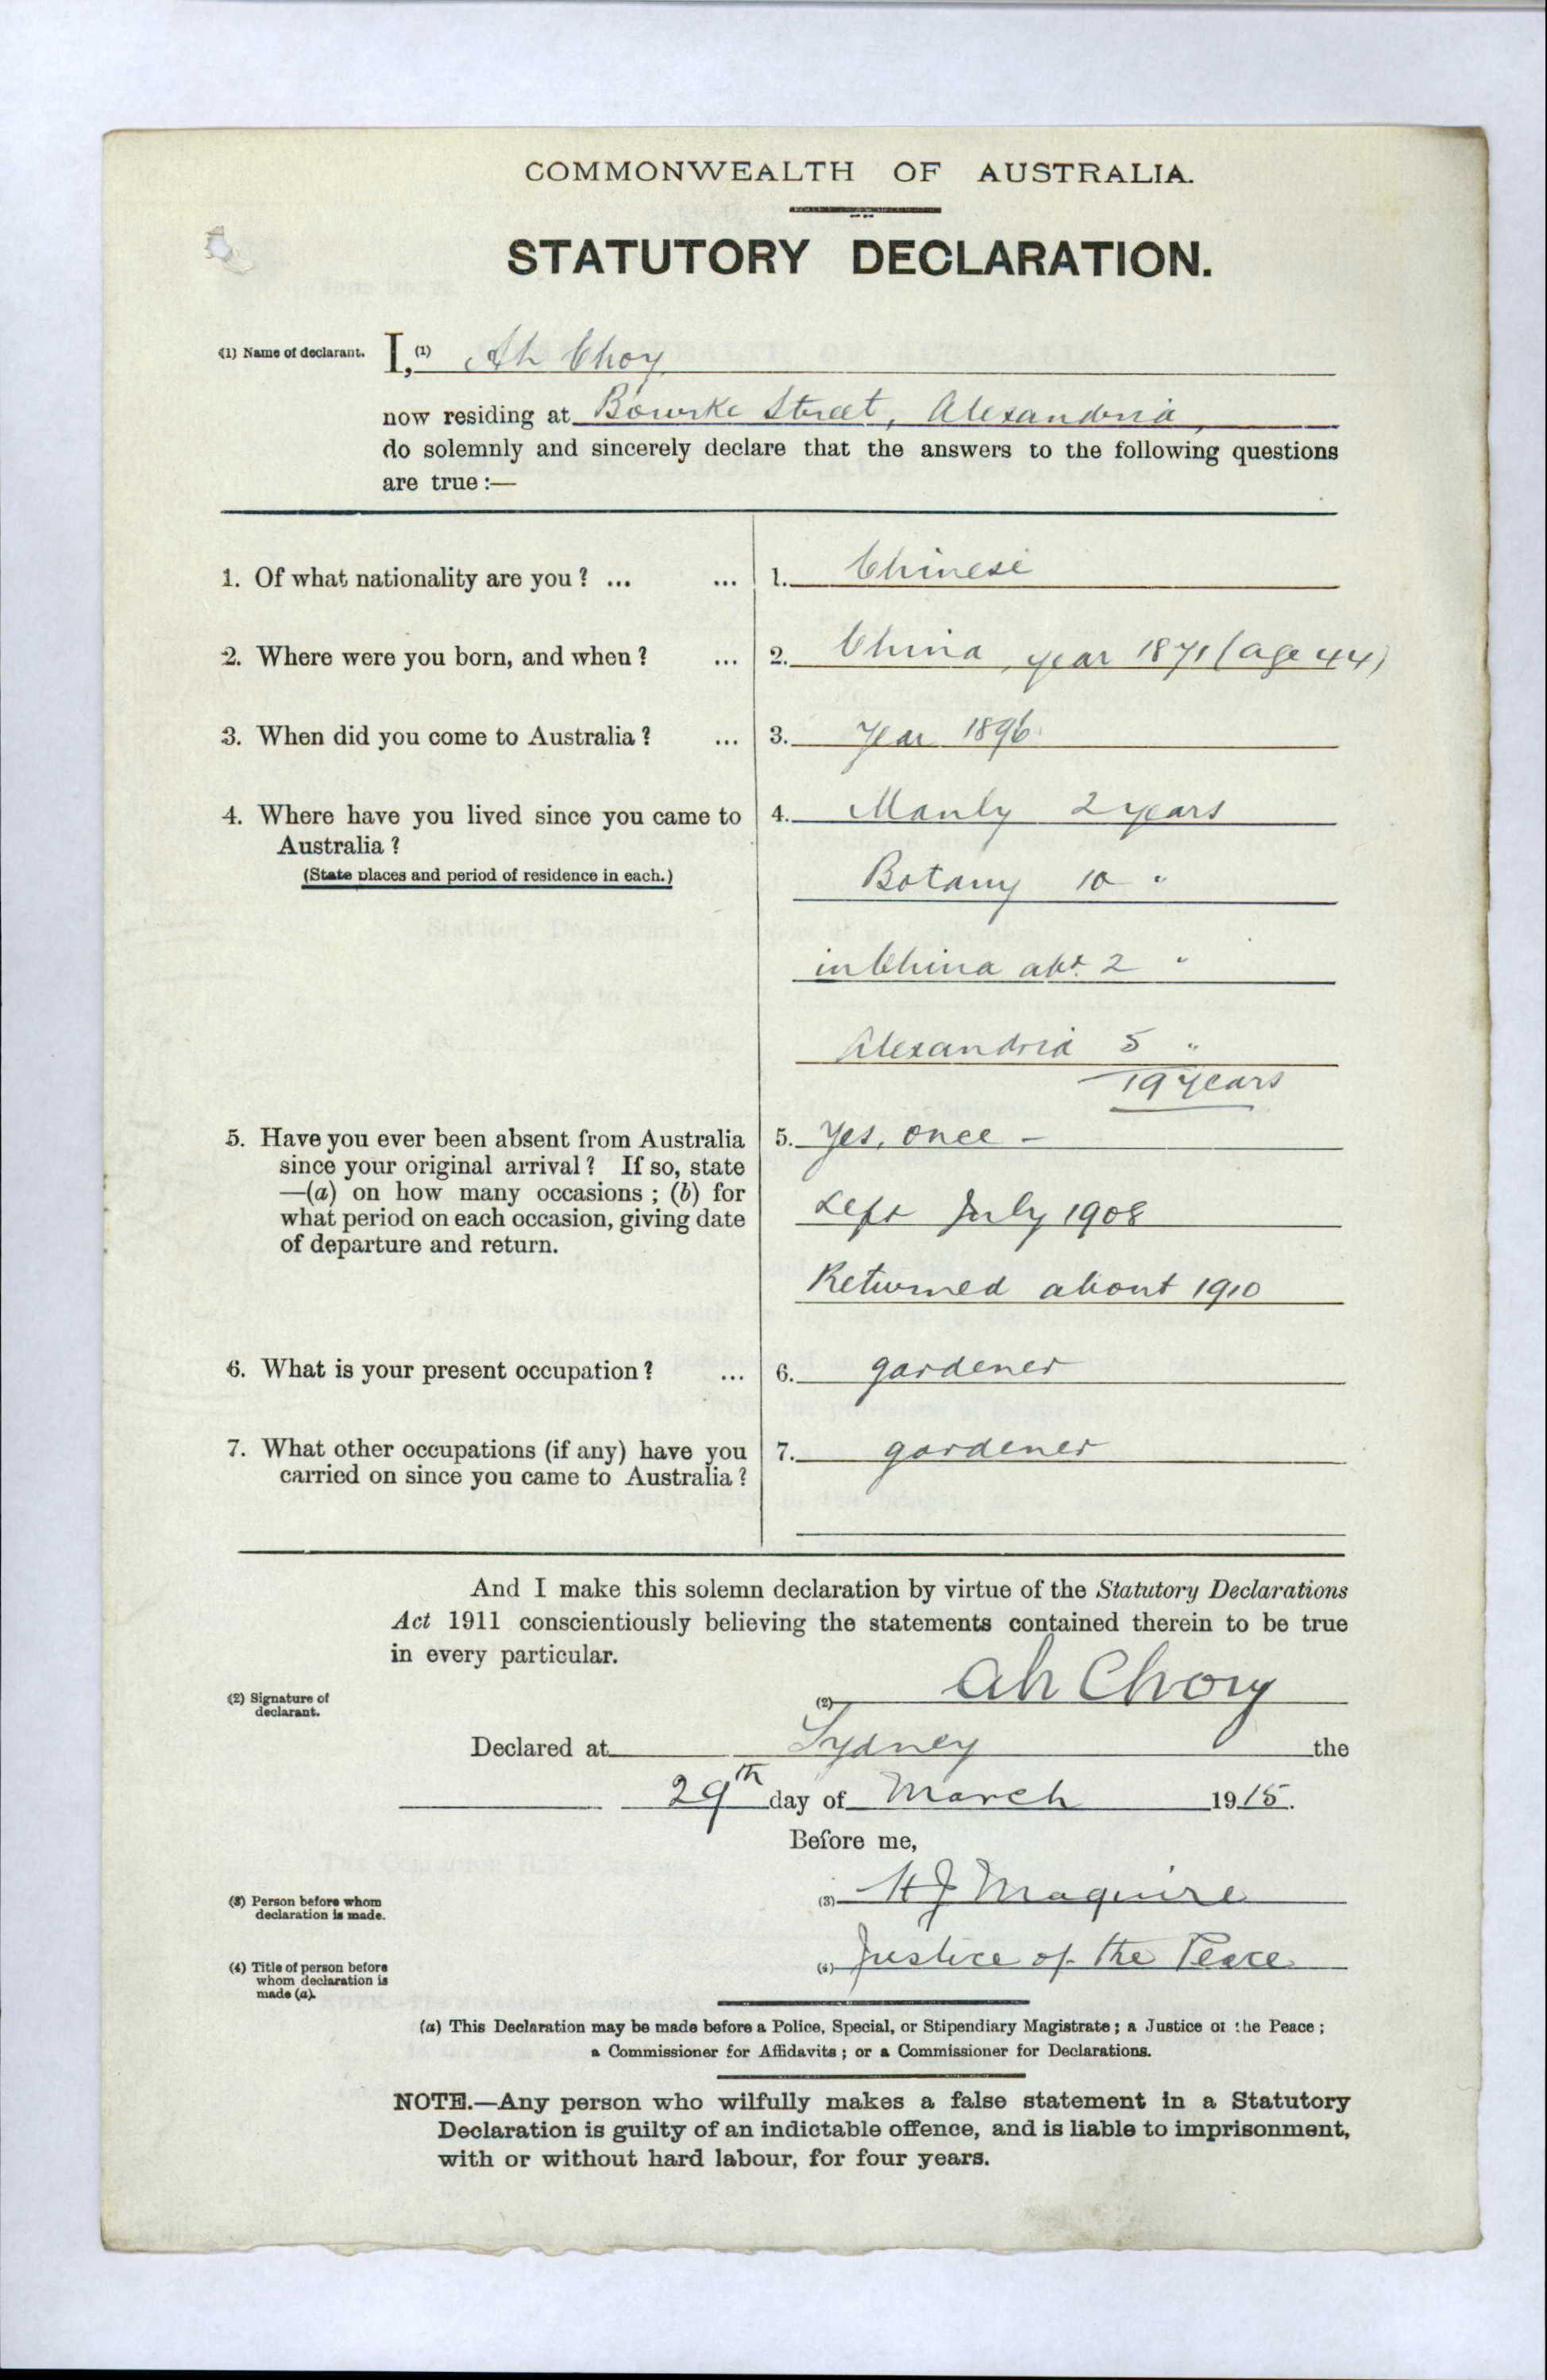 COMMONWEALTH OF AUSTRALIA.
STATUTORY DECLARATION.
(1) Name of declarant. I, (1) Ah Choy
now residing at Bourke Street, Alexandria
do solemnly and sincerely declare that the answers to the following questions
are true:—
1. Of what nationality are you? ... ... 1. Chinese
2. Where were you born, and when? ... 2. China, year 1871 (age 44)
3. When did you come to Australia? ... 3. Year 1896
4. Where have you lived since you came to 4. Manly 2 years
Australia?
(State places and period of residence in each.)
Botany 10 "
in China abt. 2 "
Alexandria 5 "
19 years
5. Have you ever been absent from Australia 5. Yes, once -
since your original arrival? If so, state
—(a) on how many occasions; (b) for
what period on each occasion, giving date
of departure and return.
Left July 1908
Returned about 1910
6. What is your present occupation? ... 6. gardener
7. What other occupations (if any) have you 7. gardener
carried on since you came to Australia?
And I make this solemn declaration by virtue of the Statutory Declarations
Act 1911 conscientiously believing the statements contained therein to be true
in every particular.
(2) Signature of
declarant.
(2) Ah Choy
Declared at Sydney the
29th day of March 1915.
Before me,
(3) Person before whom
declaration is made.
(3) H J Maguire
(4) Title of person before
whom declaration is
made (a).
(4) Justice of the Peace
(a) This Declaration may be made before a Police, Special, or Stipendiary Magistrate; a Justice of the Peace;
a Commissioner for Affidavits; or a Commissioner for Declarations.
NOTE.—Any person who wilfully makes a false statement in a Statutory
Declaration is guilty of an indictable offence, and is liable to imprisonment,
with or without hard labour, for four years.